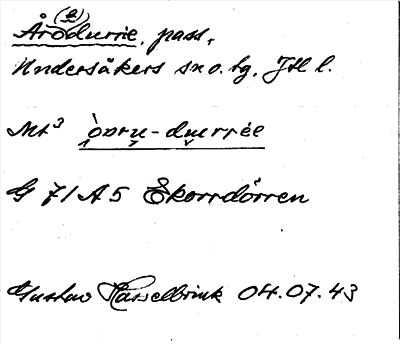 Åro(e)durrie, pass,
Undersåkers sn o. tg, Jtl l.
Mt³ òvru-durrée
G 71 A5 Ekorrdörren
Gustav Hasselbrink 04.07.43